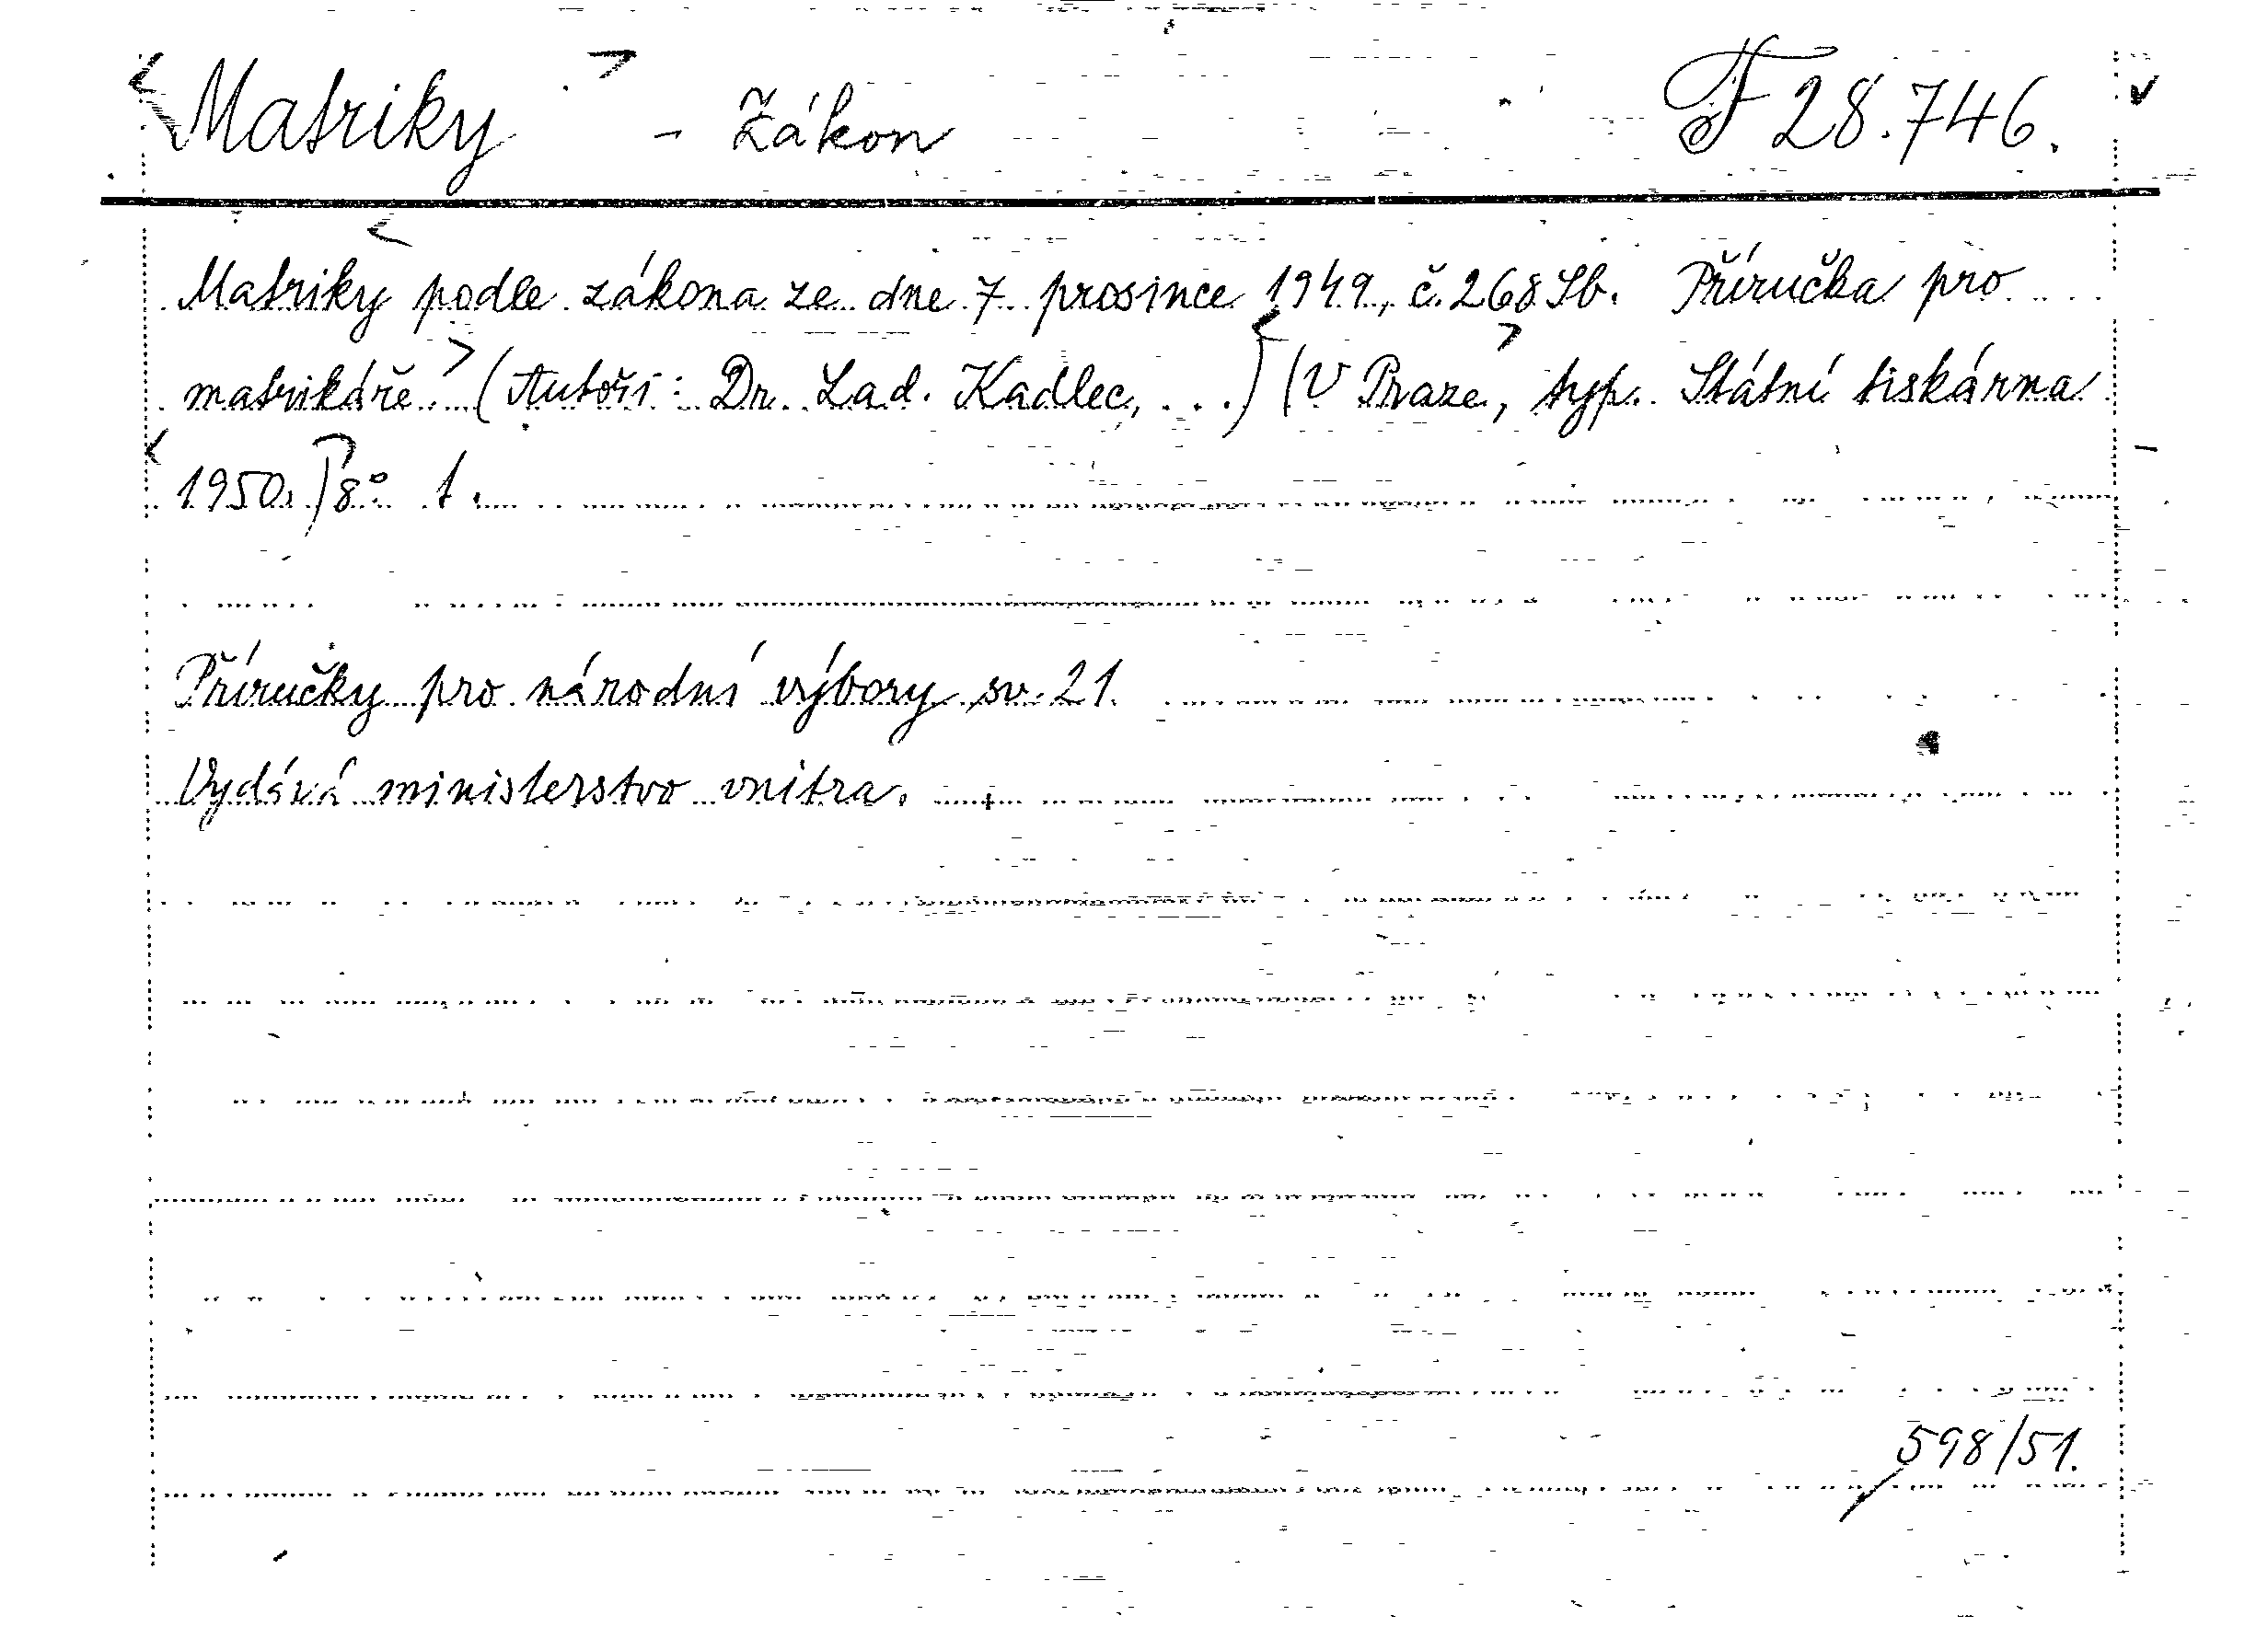 Matriky - Zákon F 28.746.
Matriky podle zákona ze dne 7. prosince 1949, č. 268 Sb. Příručka pro
matrikáře. (Autoři: Dr. Lad. Kadlec, ...) (V Praze, typ. Státní tiskárna
1950.) 8° t.
Příručky pro národní výbory sv. 21.
Vydává ministerstvo vnitra.
598/51.